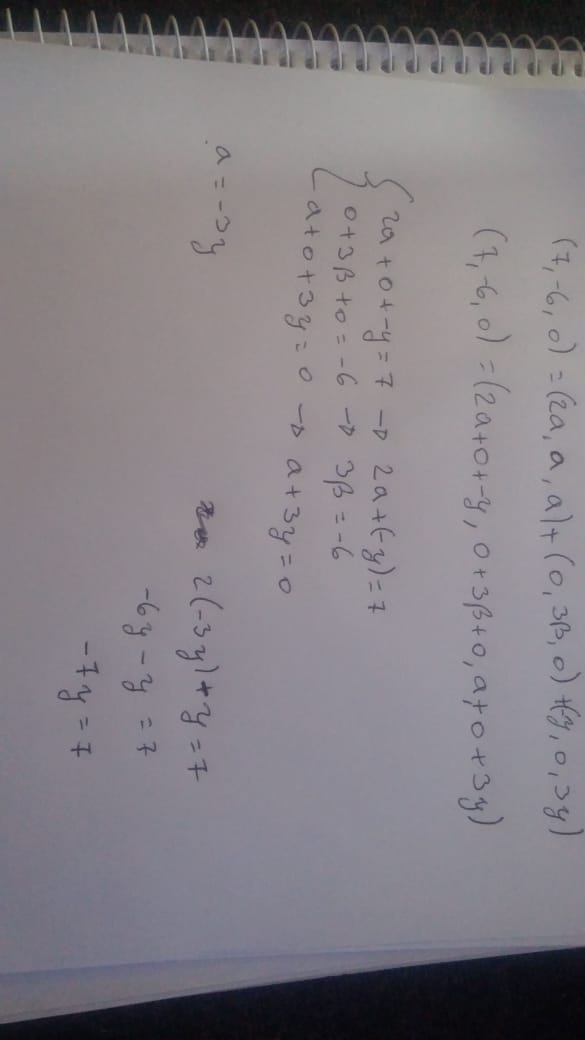 (7,-6,0) = (2a, a, a) + (0, 3β, 0) + (-y, 0, 3y)
(7,-6,0) = (2a+0+-y, 0+3β+0, a+0+3y)
2a+0+-y=7 → 2a+(-y)=7
0+3β+0=-6 → 3β=-6
a+0+3y=0 → a+3y=0
a=-3y
2(-3y)+y=7
-6y-y=7
-7y=7